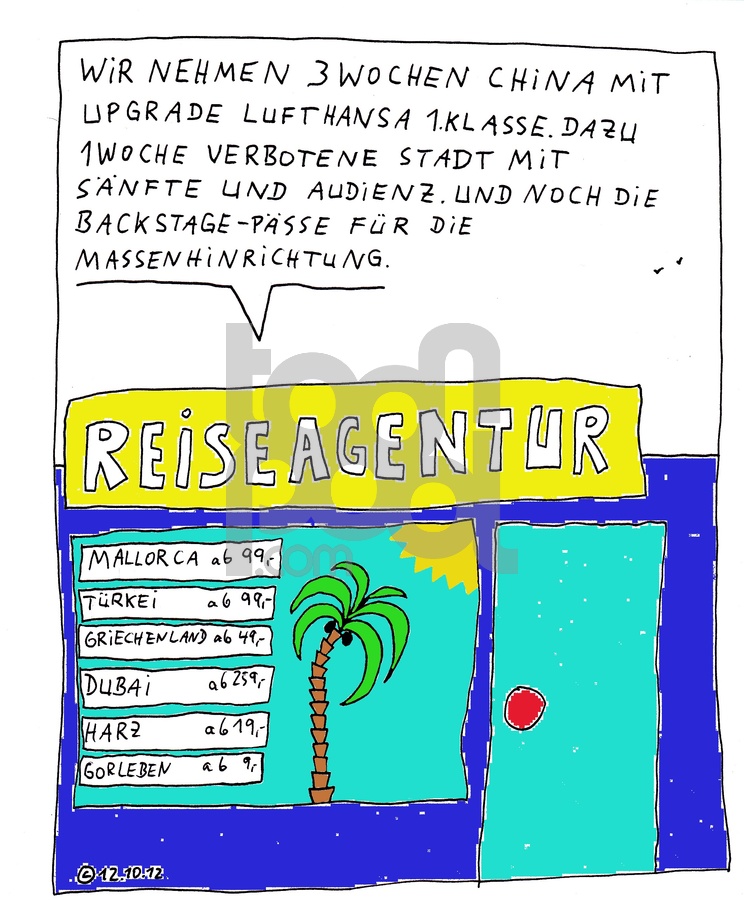 WiR NEHMEN 3 WOCHEN CHiNA MiT
UPGRADE LUFTHANSA 1.KLASSE. DAZU
1 WOCHE VERBOTENE STADT MiT
SÄNFTE UND AUDiENZ. UND NOCH DiE
BACKSTAGE-PÄSSE FÜR DiE
MASSENHiNRiCHTUNG.
REiSEAGENTUR
MALLORCA ab 99,-
TÜRKEi ab 99,-
GRiECHENLAND ab 49,-
DUBAi ab 259,-
HARZ ab 19,-
GORLEBEN ab 9,-
toonpool
.com
© 12.10.12